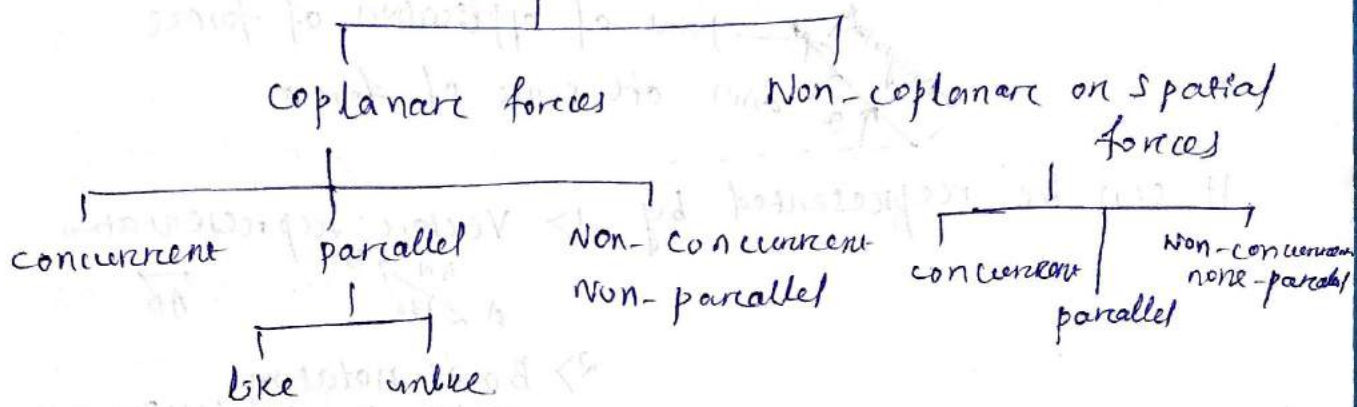 Coplanare forces
Non-coplanare or spatial
forces
concurrent
parallel
Non-concurrent
Non-parallel
concurrent
parallel
Non-concurrent
none-parallel
like
unlike